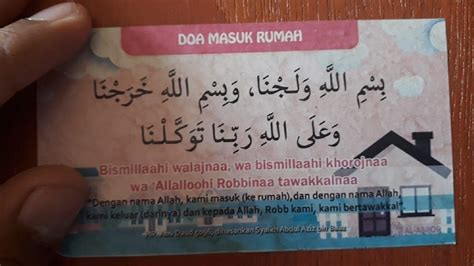 DOA MASUK RUMAH
بِسْمِ اللَّهِ وَلَجْنَا، وَبِسْمِ اللَّهِ خَرَجْنَا
وَعَلَى اللَّهِ رَبِّنَا تَوَكَّلْنَا
Bismillaahi walajnaa, wa bismillaahi khorojnaa
wa 'Alalloohi Robbinaa tawakkalnaa
"Dengan nama Allah, kami masuk (ke rumah),dan dengan nama Allah,
kami keluar (darinya) dan kepada Allah, Robb kami, kami bertawakkal"
Abu Daud 5096, dihasankan Syaikh Abdul Aziz bin Baaz